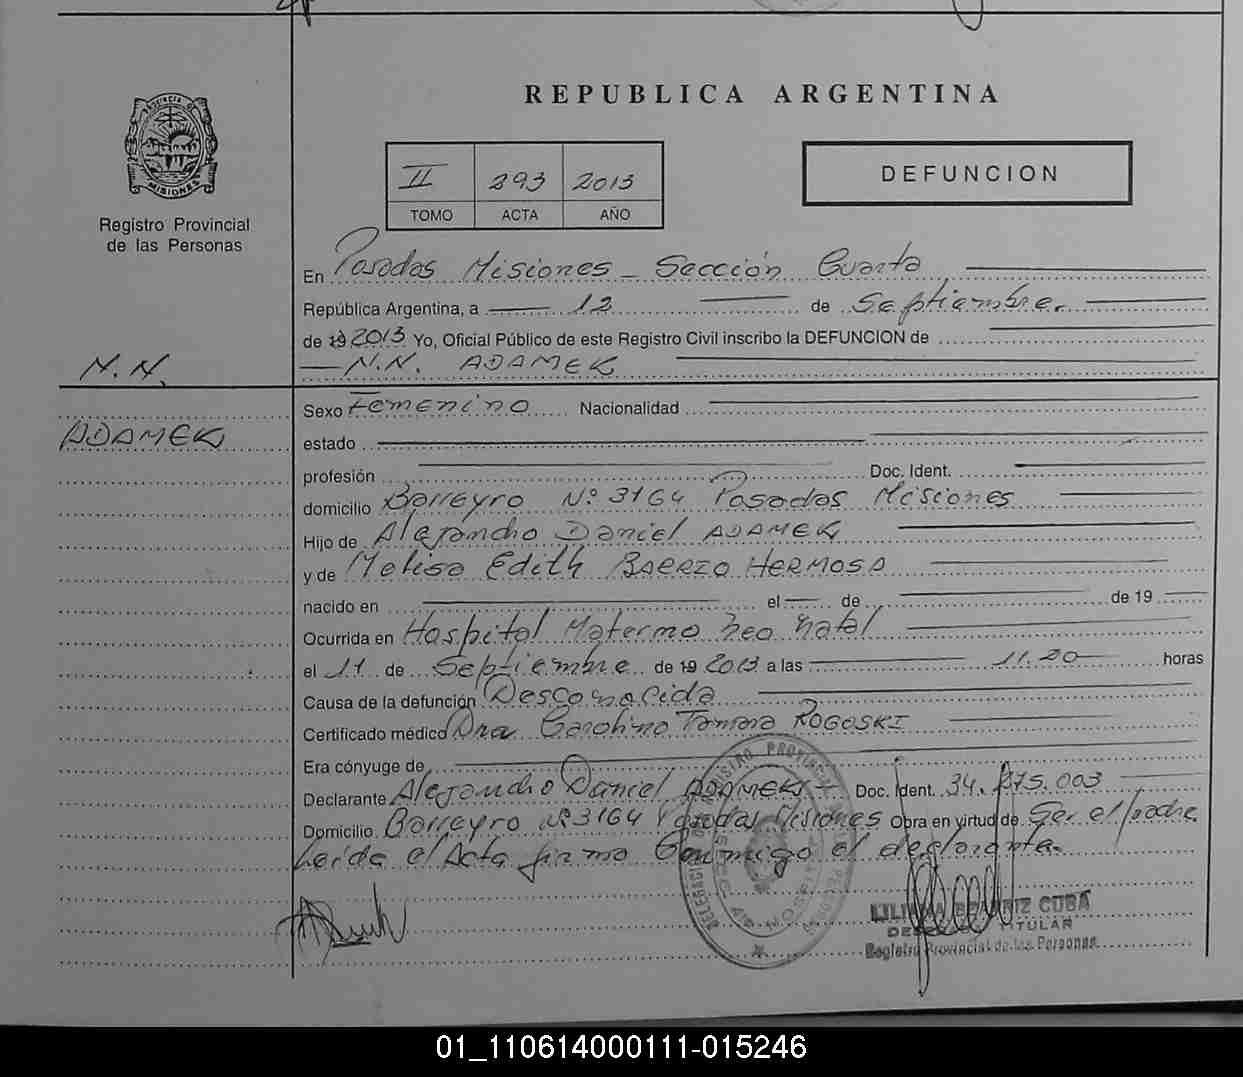 REPUBLICA ARGENTINA
PROVINCIA DE
MISIONES
Registro Provincial
de las Personas
II 293 2013
TOMO ACTA AÑO
DEFUNCION
En Posadas Misiones - Sección Cuarta
República Argentina, a 12 de Septiembre.
de 19 2013 Yo, Oficial Público de este Registro Civil inscribo la DEFUNCION de
N.N. N.N. ADAMEK
Sexo Femenino Nacionalidad
ADAMEK
estado
profesión Doc. Ident.
domicilio Barreyro Nº 3164 Posadas Misiones
Hijo de Alejandro Daniel ADAMEK
y de Melisa Edith BARRIO HERMOSA
nacido en el de de 19
Ocurrida en Hospital Materno Neo Natal
el 11 de Septiembre de 19 2013 a las 11.20 horas
Causa de la defunción Desconocida
Certificado médico Dra Carolina Tamara ROGOSKI
Era cónyuge de
Declarante Alejandro Daniel ADAMEK Doc. Ident. 34. 003
Domicilio Barreyro Nº 3164 Posadas Misiones Obra en virtud de Ser el padre
Leída el Acta firma Conmigo el declarante.
LILIANA BEATRIZ CUBA
TITULAR
Registro Provincial de las Personas
01_110614000111-015246